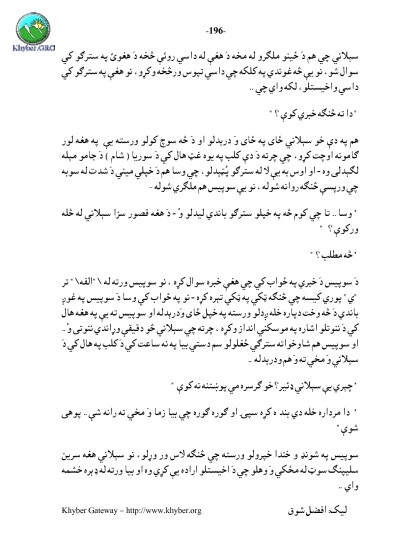 -196-
Khyber.ORG
سبلاني چي هم دَ ځينو ملګرو له مخه دَ هغې له داسي روئي څخه دَ هغوئ په سترګو کي
سوال شو ، نو يې څه غوندي په کلکه چي داسي تپوس ورڅخه وکړو ، نو هغې په سترګو کي
داسي واخيستلو ، لکه واي چي ..
" دا ته څنګه خبري کوې ؟ "
هم په دې خو سبلاني ځاى په ځاى وَ درېدلو او دَ څه سوچ کولو ورسته يې په هغه لور
ګامونه اوچت کړو ، چي چرته دَ دې کلب په يوه غټ هال کي دَ سوريا ( شام ) دَ جامو مېله
لګېدلى وه - او اوس به يې لا له سترګو پټېدلو ، چي وسا هم دَ خپلي ميني دَ شدت له سوبه
چي ورپسې څنګه روانه شوله ، نو يې سوېس هم ملګري شوله -
" وسا .. تا چي کوم څه په خپلو سترګو باندي ليدلو وُ - دَ هغه قصور سزا سبلاني له څله
ورکوې ؟ "
" څه مطلب ؟ "
دَ سوېس دَ خبري په ځواب کي چي هغې خبره سوال کړه ، نو سوېس ورته له \"الفه\" تر
"ي" پوري کيسه چي څنګه ټکي په ټکي تېره کړه - نو په ځواب کي وسا دَ سوېس په غوږ
باندي دَ څه وخت دپاره خله ږدلو ورسته په خپل ځاى وَدرېدله او سوېس ته يې په هغه هال
کي دَ ننوتلو اشاره په موسکني انداز وکړه ، چرته چي سبلاني څو دقيقې وړاندي ننوتى وُ -
او سوېس هم شاوخوا ته سترګي ځغلولو سم دستي بيا په نه ساعت کي دَ کلب په هال کي دَ
سبلاني وَ مخي ته وَ هم ودرېدله ..
" چېري يې سبلاني ډئير؟ خو ګرسره مي پوښتنه نه کوې "
" دا مرداره خله دي بنده کړه سپۍ او ګوره ګوره چي بيا زما وَ مخي ته رانه شې .. پوهى
شوې "
سوېس په شونډو خندا خپرولو ورسته چي څنګه لاس ور وړلو ، نو سبلاني هغه سرين
سليپنګ سوټ له مځکي وَ وهلو چي دَ اخيستلو اراده يې کړي وه او بيا ورته له ډېره خشمه
واي ..
Khyber Gateway – http://www.khyber.org
ليک: افضل شوق